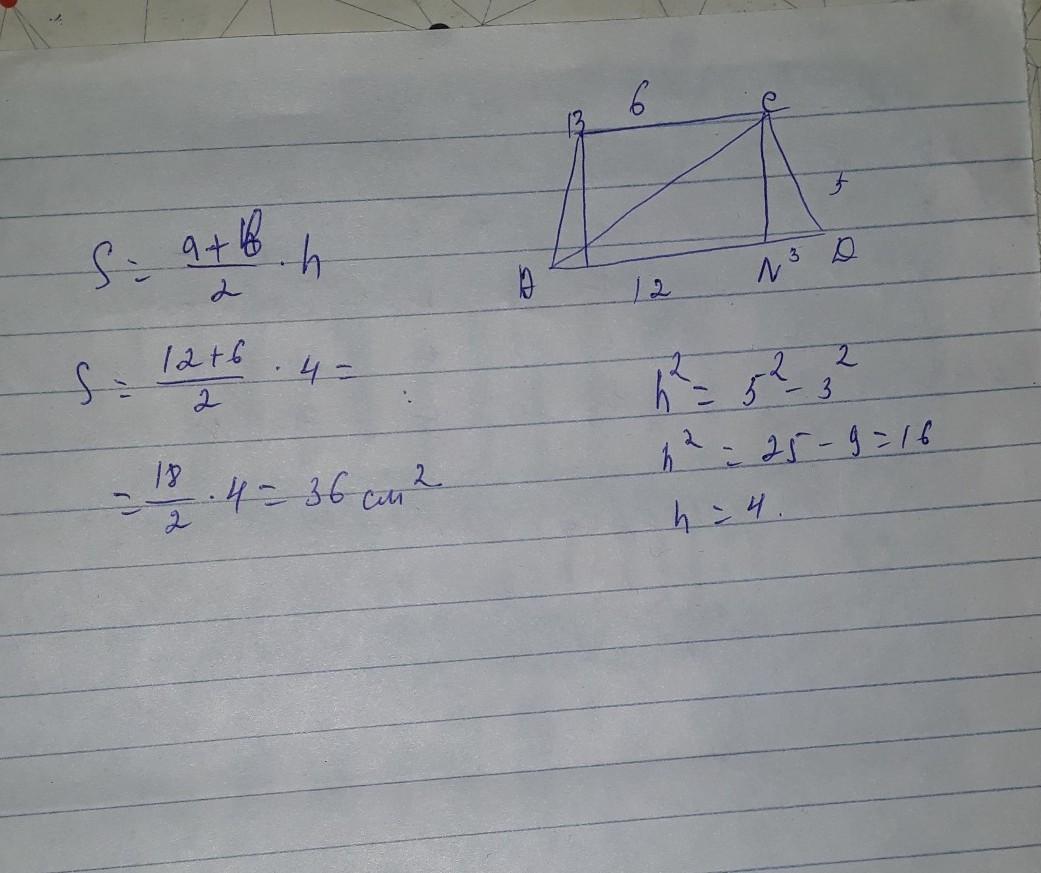 6
B C
5
A 12 N 3 D
S = (a + b)/2 · h
S = (12+6)/2 · 4 =
= 18/2 · 4 = 36 см²
h² = 5² - 3²
h² = 25 - 9 = 16
h = 4.